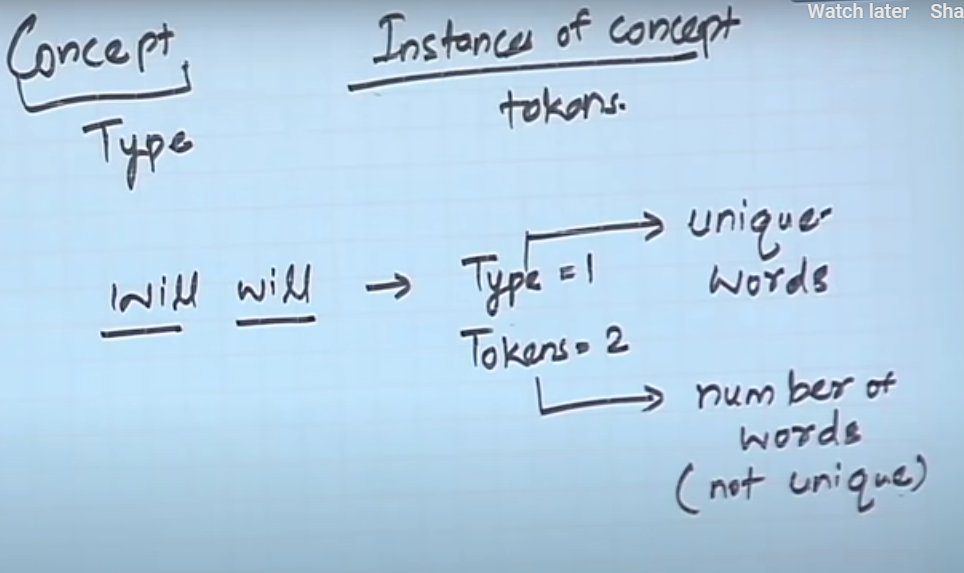 Watch later Sha
Concept Instances of concept
Type tokens.
will will → Type = 1 → unique words
Tokens = 2
→ number of
words
(not unique)